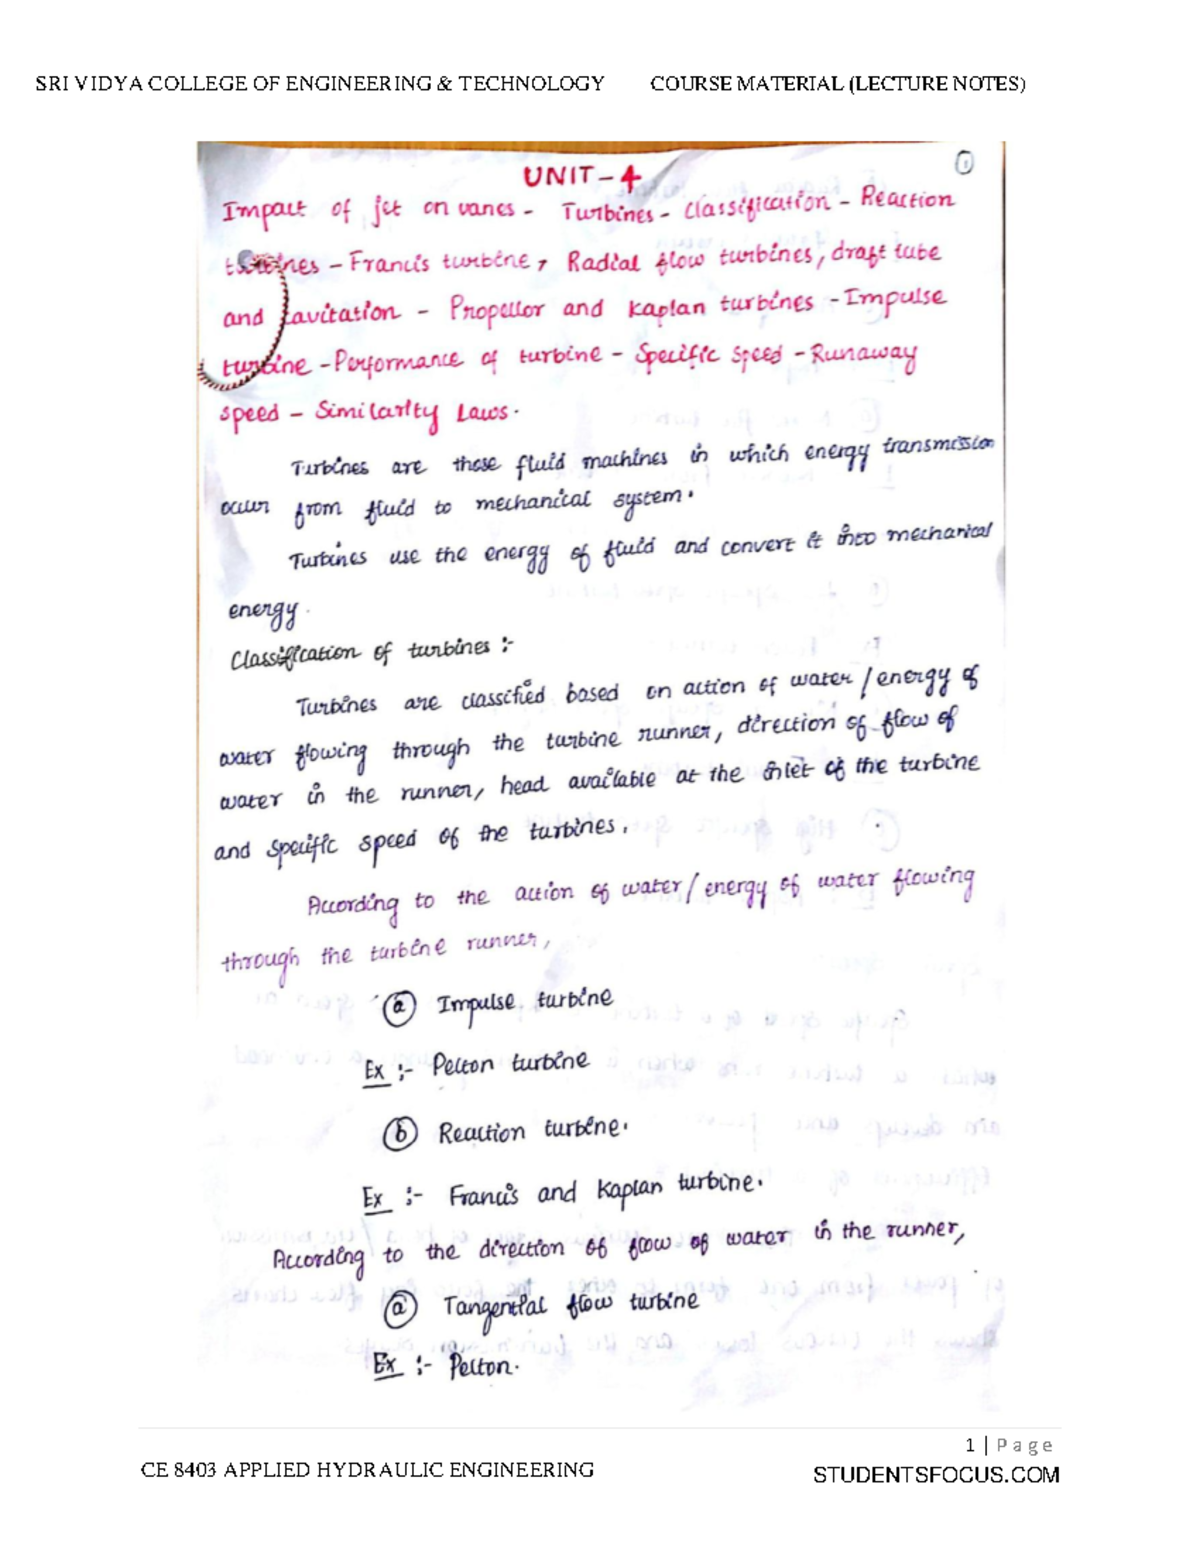 SRI VIDYA COLLEGE OF ENGINEERING & TECHNOLOGY COURSE MATERIAL (LECTURE NOTES)
①
UNIT-4
Impact of jet on vanes - Turbines - classification - Reaction
turbines - Francis turbine, Radial flow turbines, draft tube
and cavitation - Propellor and kaplan turbines - Impulse
turbine - Performance of turbine - Specific speed - Runaway
speed - Similarity Laws.
Turbines are those fluid machines in which energy transmission
occur from fluid to mechanical system.
Turbines use the energy of fluid and convert it into mechanical
energy.
Classification of turbines :-
Turbines are classified based on action of water / energy of
water flowing through the turbine runner, direction of flow of
water in the runner, head available at the inlet of the turbine
and specific speed of the turbines.
According to the action of water/energy of water flowing
through the turbine runner,
ⓐ Impulse turbine
Ex :- Pelton turbine
ⓑ Reaction turbine.
Ex :- Francis and Kaplan turbine.
According to the direction of flow of water in the runner,
ⓐ Tangential flow turbine
Ex :- Pelton.
1 | Page
CE 8403 APPLIED HYDRAULIC ENGINEERING STUDENTSFOCUS.COM